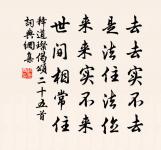 去去实不去
是法住法位
来来实不来
世間相常住
释道璨偈頌二十五首
詞典網集